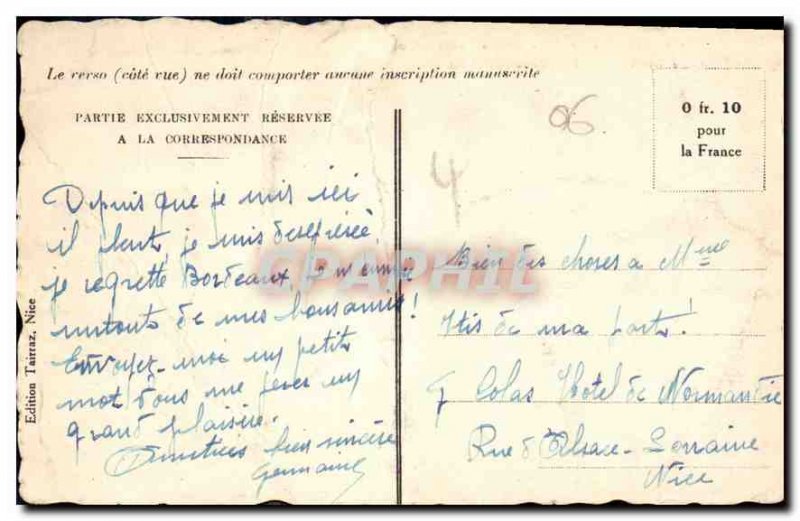 Le verso (côté vue) ne doit comporter aucune inscription manuscrite
PARTIE EXCLUSIVEMENT RÉSERVÉE
A LA CORRESPONDANCE
0 fr. 10
pour
la France
06
4
Depuis que je suis ici
il pleut, je suis désespérée
je regrette Bordeaux,
surtout de mes bons amis!
Envoyez-moi un petit
mot vous me ferez un
grand plaisir.
Amitiés bien sincère
Germaine
Bien des choses a Mme
de ma part!
Colas Hotel de Normandie
Rue d'Alsace-Lorraine
Nice
Edition Tairraz, Nice
CPAPHIL